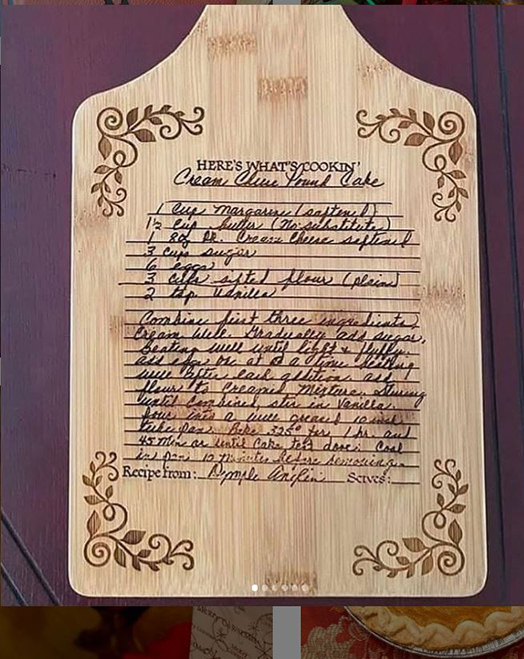 HERE'S WHAT'S COOKIN'
Cream Chese Pound Cake
1 Cup Margarine (softened)
1½ Cup butter (No substitute)
1 8oz Pk. Cream Cheese softened
3 Cups sugar
6 eggs
3 Cups sifted flour (plain)
2 tsp Vanilla
Combine first three ingredients,
Cream well. Gradually add sugar,
Beating well until light & fluffy.
add eggs one at a time beating
well after each addition add
flour to Creamed Mixture, stirring
until combined stir in Vanilla.
Pour into a well greased 10 inch
tube pan. Bake 325° for 1 hr. and
45 min or until Cake test done. Cool
in pan 10 Minutes before removing.
Recipe from: Serves: